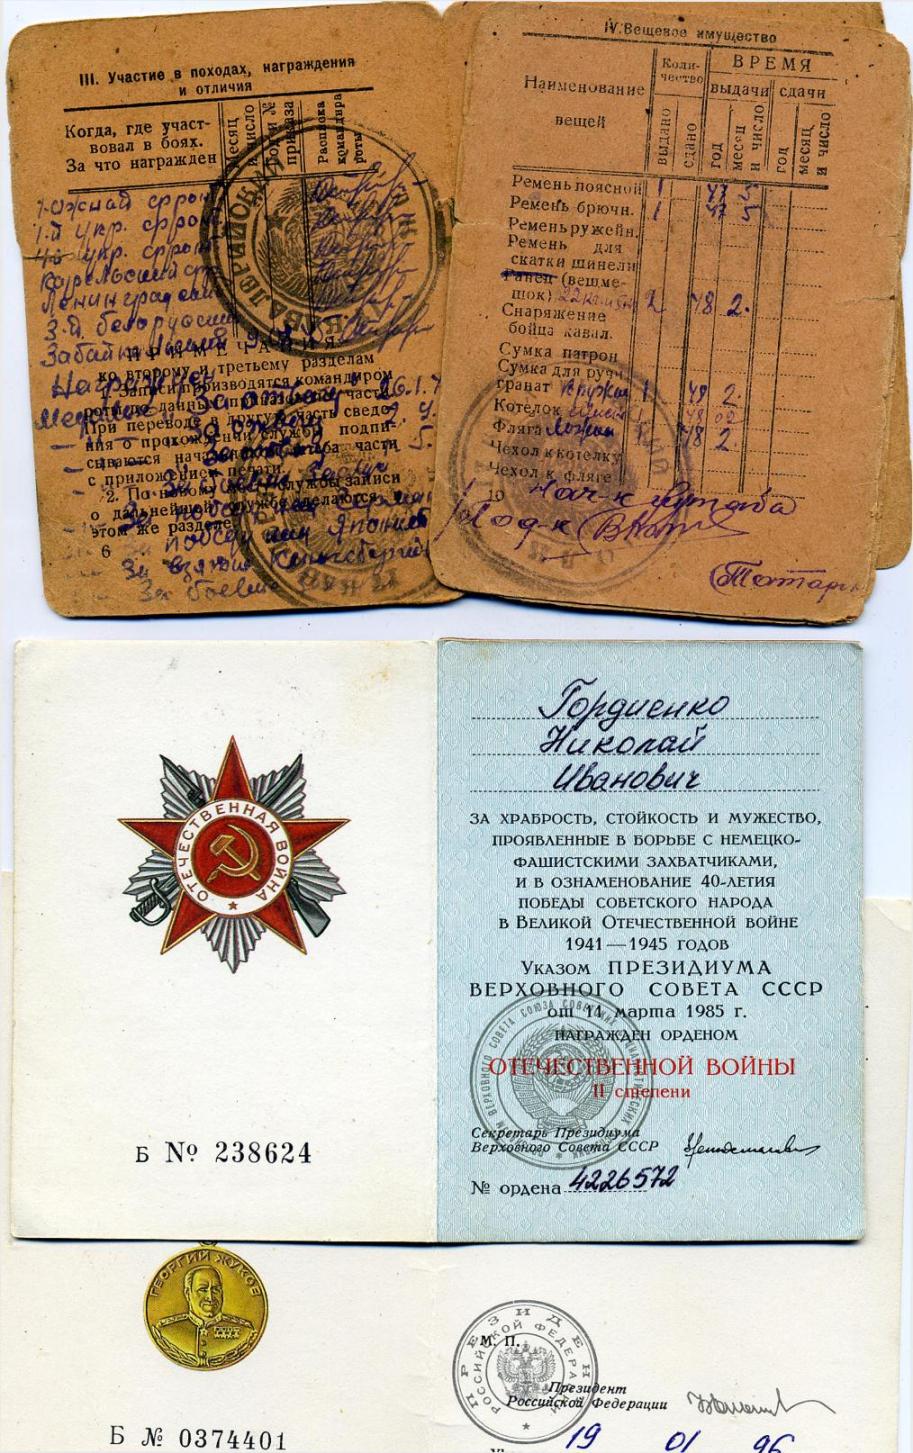 III. Участие в походах, награждения
и отличия
Когда, где участ-
вовал в боях.
За что награжден
месяц
и число
Годы №
приказа
Расписка
командира
роты
Южный фронт
1-й укр. фронт
4й укр. фронт
Карельский
Ленинградский
3-й белорусский
Забайкальский
ПРИМЕЧАНИЯ
ко второму и третьему разделам
1. Записи производятся командиром
роты по данным приказов части.
При переводе в другую часть сведе-
ния о прохождении службы подпи-
сываются начальником штаба части
с приложением печати.
2. По новому службы записи
о дальнейшей службе делаются
в этом же разделе.
6
Награжден
Медалью За отвагу
За отвагу
За боевые заслуги
За победу над Германией
За победу над Японией
За взятие Кенигсберга
За боевые
IV. Вещевое имущество
Наименование
вещей
Коли-
чество
выдано
сдано
ВРЕМЯ
выдачи
сдачи
год
месяц
и число
год
месяц
и число
Ремень поясной 1 47 5
Ремень брючн. 1 47 5
Ремень ружейн.
Ремень для
скатки шинели
Ранец (вещ.ме-
шок) 2 48 2.
Снаряжение
бойца кавал.
Сумка патрон
Сумка для ручн
гранат кружка 1 48 2
Котелок 48
Фляга ложка 48 2
Чехол к котелку
Чехол к фляге
10
Нач-к штаба
Под-к
ОТЕЧЕСТВЕННАЯ ВОЙНА
Б № 238624
Гордиенко
Николай
Иванович
ЗА ХРАБРОСТЬ, СТОЙКОСТЬ И МУЖЕСТВО,
ПРОЯВЛЕННЫЕ В БОРЬБЕ С НЕМЕЦКО-
ФАШИСТСКИМИ ЗАХВАТЧИКАМИ,
И В ОЗНАМЕНОВАНИЕ 40-ЛЕТИЯ
ПОБЕДЫ СОВЕТСКОГО НАРОДА
В ВЕЛИКОЙ ОТЕЧЕСТВЕННОЙ ВОЙНЕ
1941—1945 ГОДОВ
УКАЗОМ ПРЕЗИДИУМА
ВЕРХОВНОГО СОВЕТА СССР
от 11 марта 1985 г.
НАГРАЖДЕН ОРДЕНОМ
ОТЕЧЕСТВЕННОЙ ВОЙНЫ
II степени
Секретарь Президиума
Верховного Совета СССР
№ ордена 4226572
ГЕОРГИЙ ЖУКОВ
Б № 0374401
ПРЕЗИДЕНТ
РОССИЙСКОЙ ФЕДЕРАЦИИ
М. П.
Президент
Российской Федерации
19 01 96